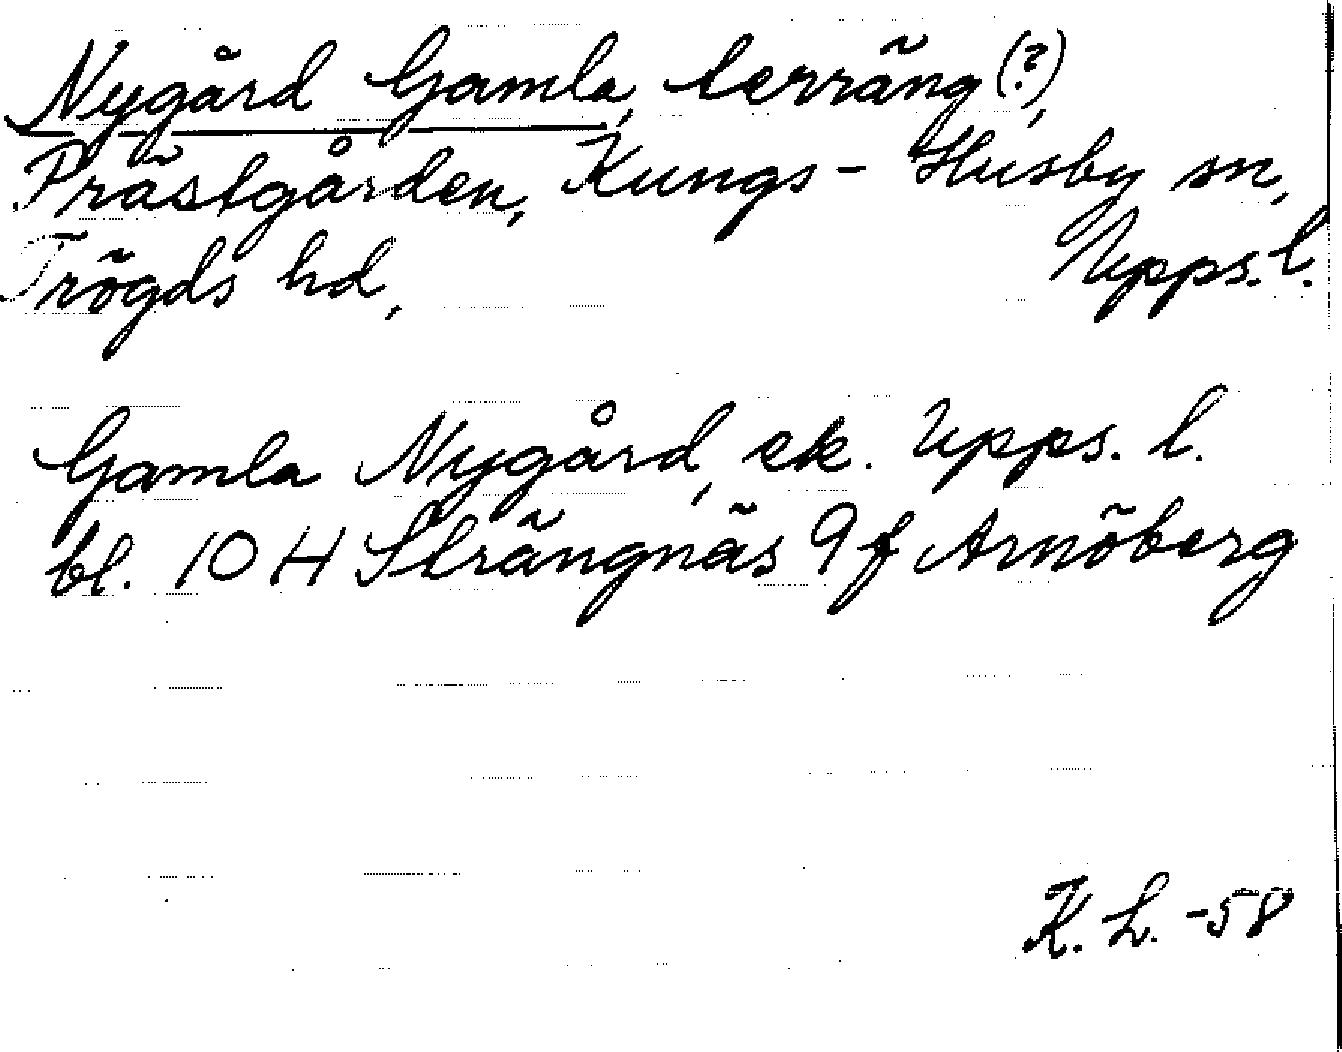 Nygård Gamla, terräng (?),
Prästgården, Kungs-Husby sn,
Trögds hd, Upps. l.
Gamla Nygård, ek. Upps. l.
bl. 10 H Strängnäs 9 f Arnöberg
K. L. -58